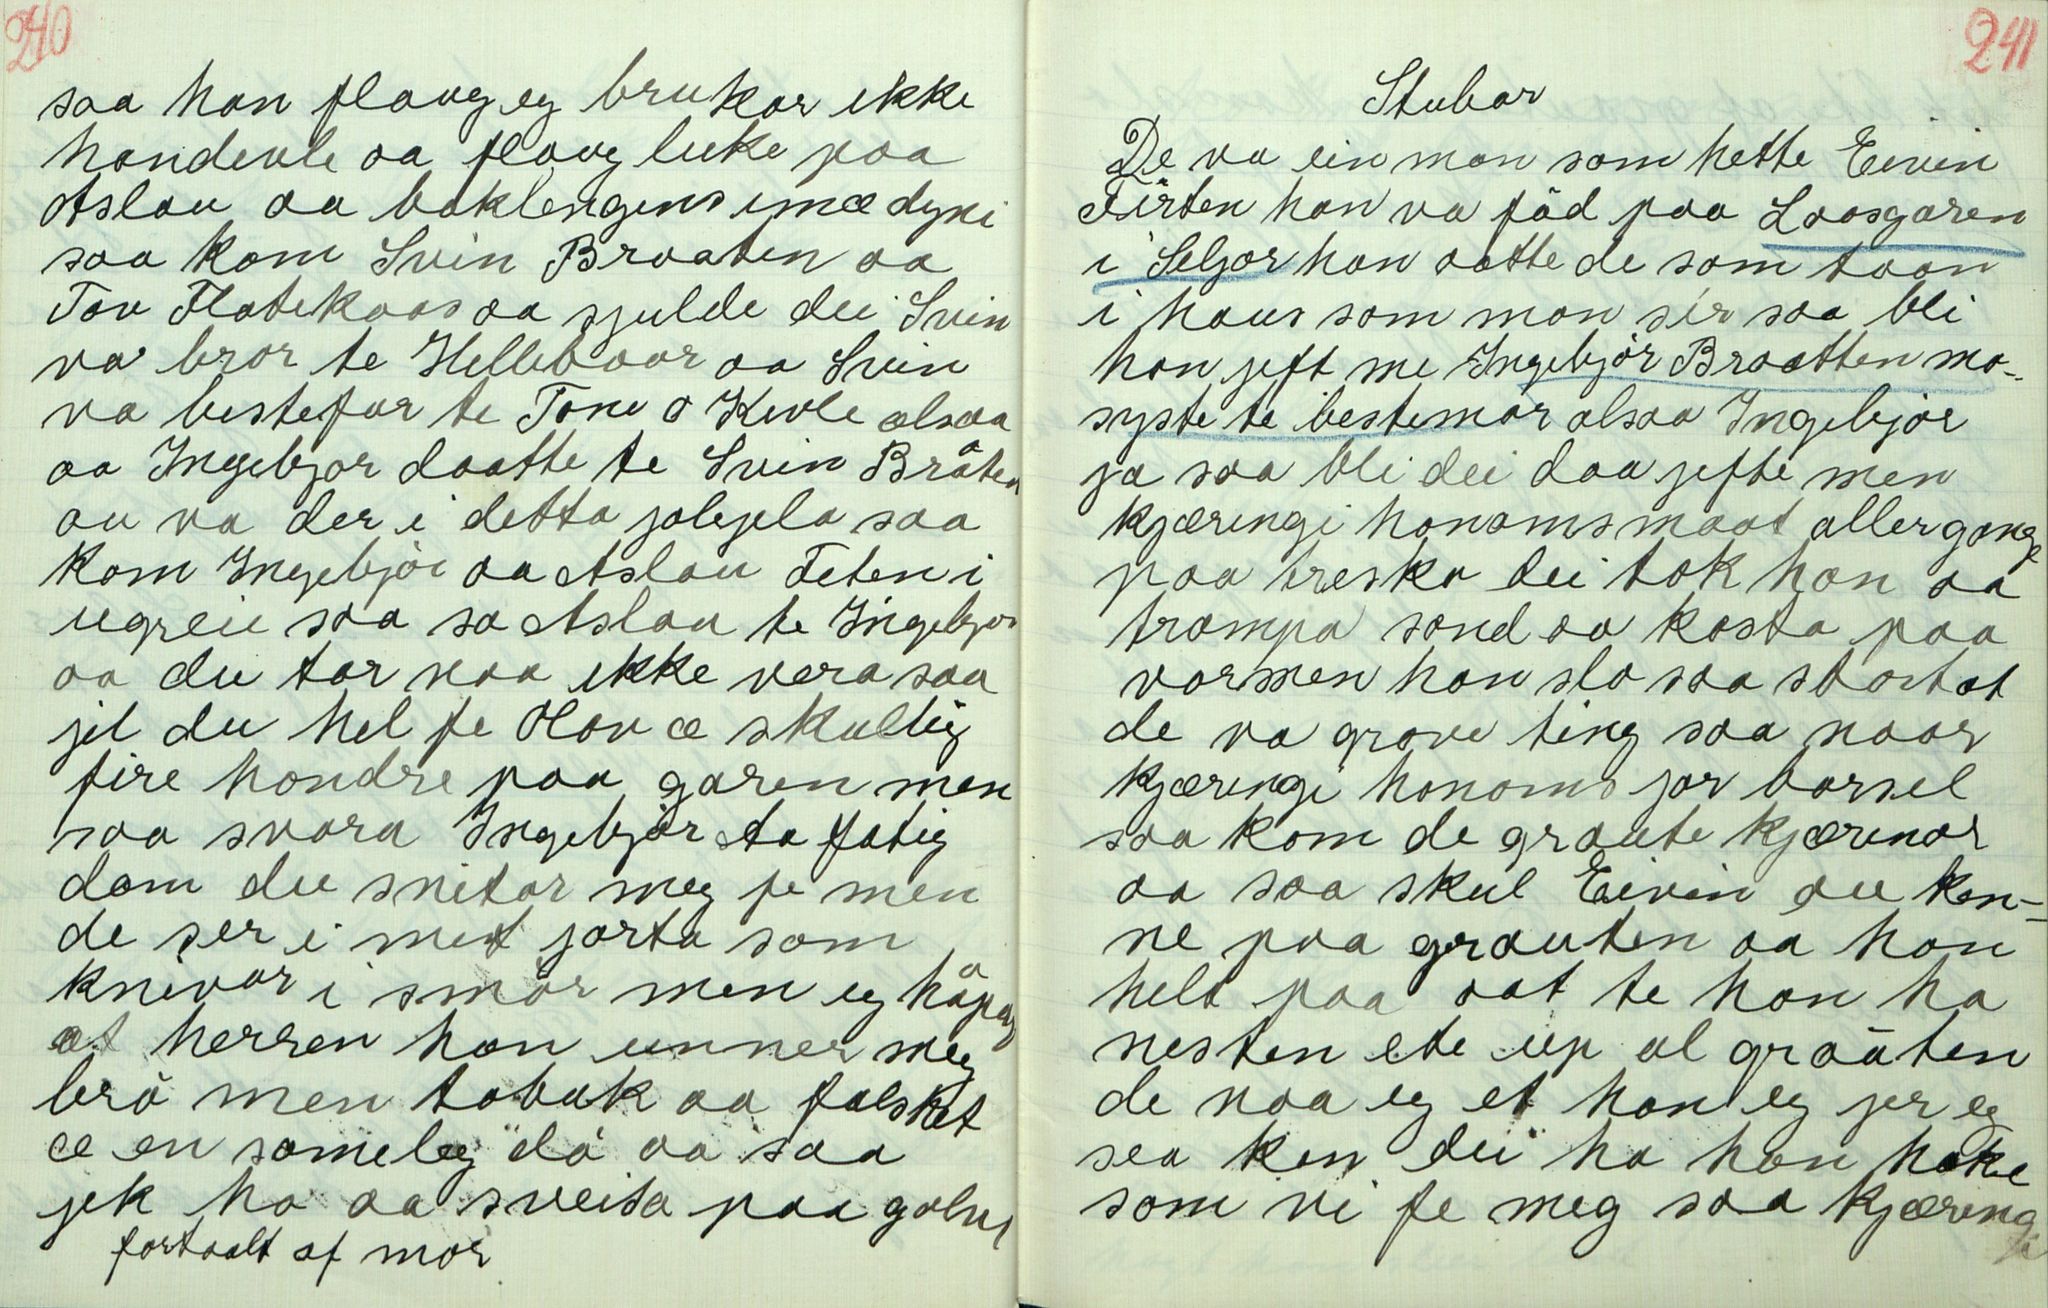 240
saa han flaug eg brukar ikke
handevle aa flaug luke paa
Aslau aa baklengens imæ dyni
saa kom Svin Braaten aa
Tov Flatekaas aa sjulde dei Svin
va bror te Hellebaar aa Svin
va bestefar te Tone o Kivle alsaa
aa Ingebjor daatte te Svin Bråten
au va der i detta jaligela saa
kom Ingebjör aa Aslau Teten i
ugreie saa sa Aslau te Ingebjor
aa du tar naa ikke vera saa
jil du hel fe Olav æ skuldig
fire hondre paa garen men
saa svara Ingebjör sta fatig
dom du snitar meg fe men
de ser i mit jarta som
knivar i smör men eg håpar
at herren han unner meg
brö men tobak aa falsket
æ en someleg dö aa saa
jek ho aa sveisa paa golve
fortaalt af mor
241
Stubar
De va ein man som hette Eivin
Tirten han va föd paa Laasgaren
i Seljor han aatte de som taan
i haus som man sir saa bli
han jeft me Ingebjör Braatten mo-
syste te bestemor alsaa Ingebjör
ja saa bli dei daa jefte men
kjæringi honoms maat aller gange
paa treska dei tok han aa
trampa sond aa kasta paa
varmen han slo saa stort at
de va grove ting saa naar
kjæringi honoms jor barsel
saa kom de graute kjæringar
aa saa skul Eivin au ken-
ne paa grauten aa han
helt paa aat te han ha
nesten ete up al graåten
de naa eg et han eg jer eg
sea ken dei ha han hake
som vi fe meg saa kjæringi